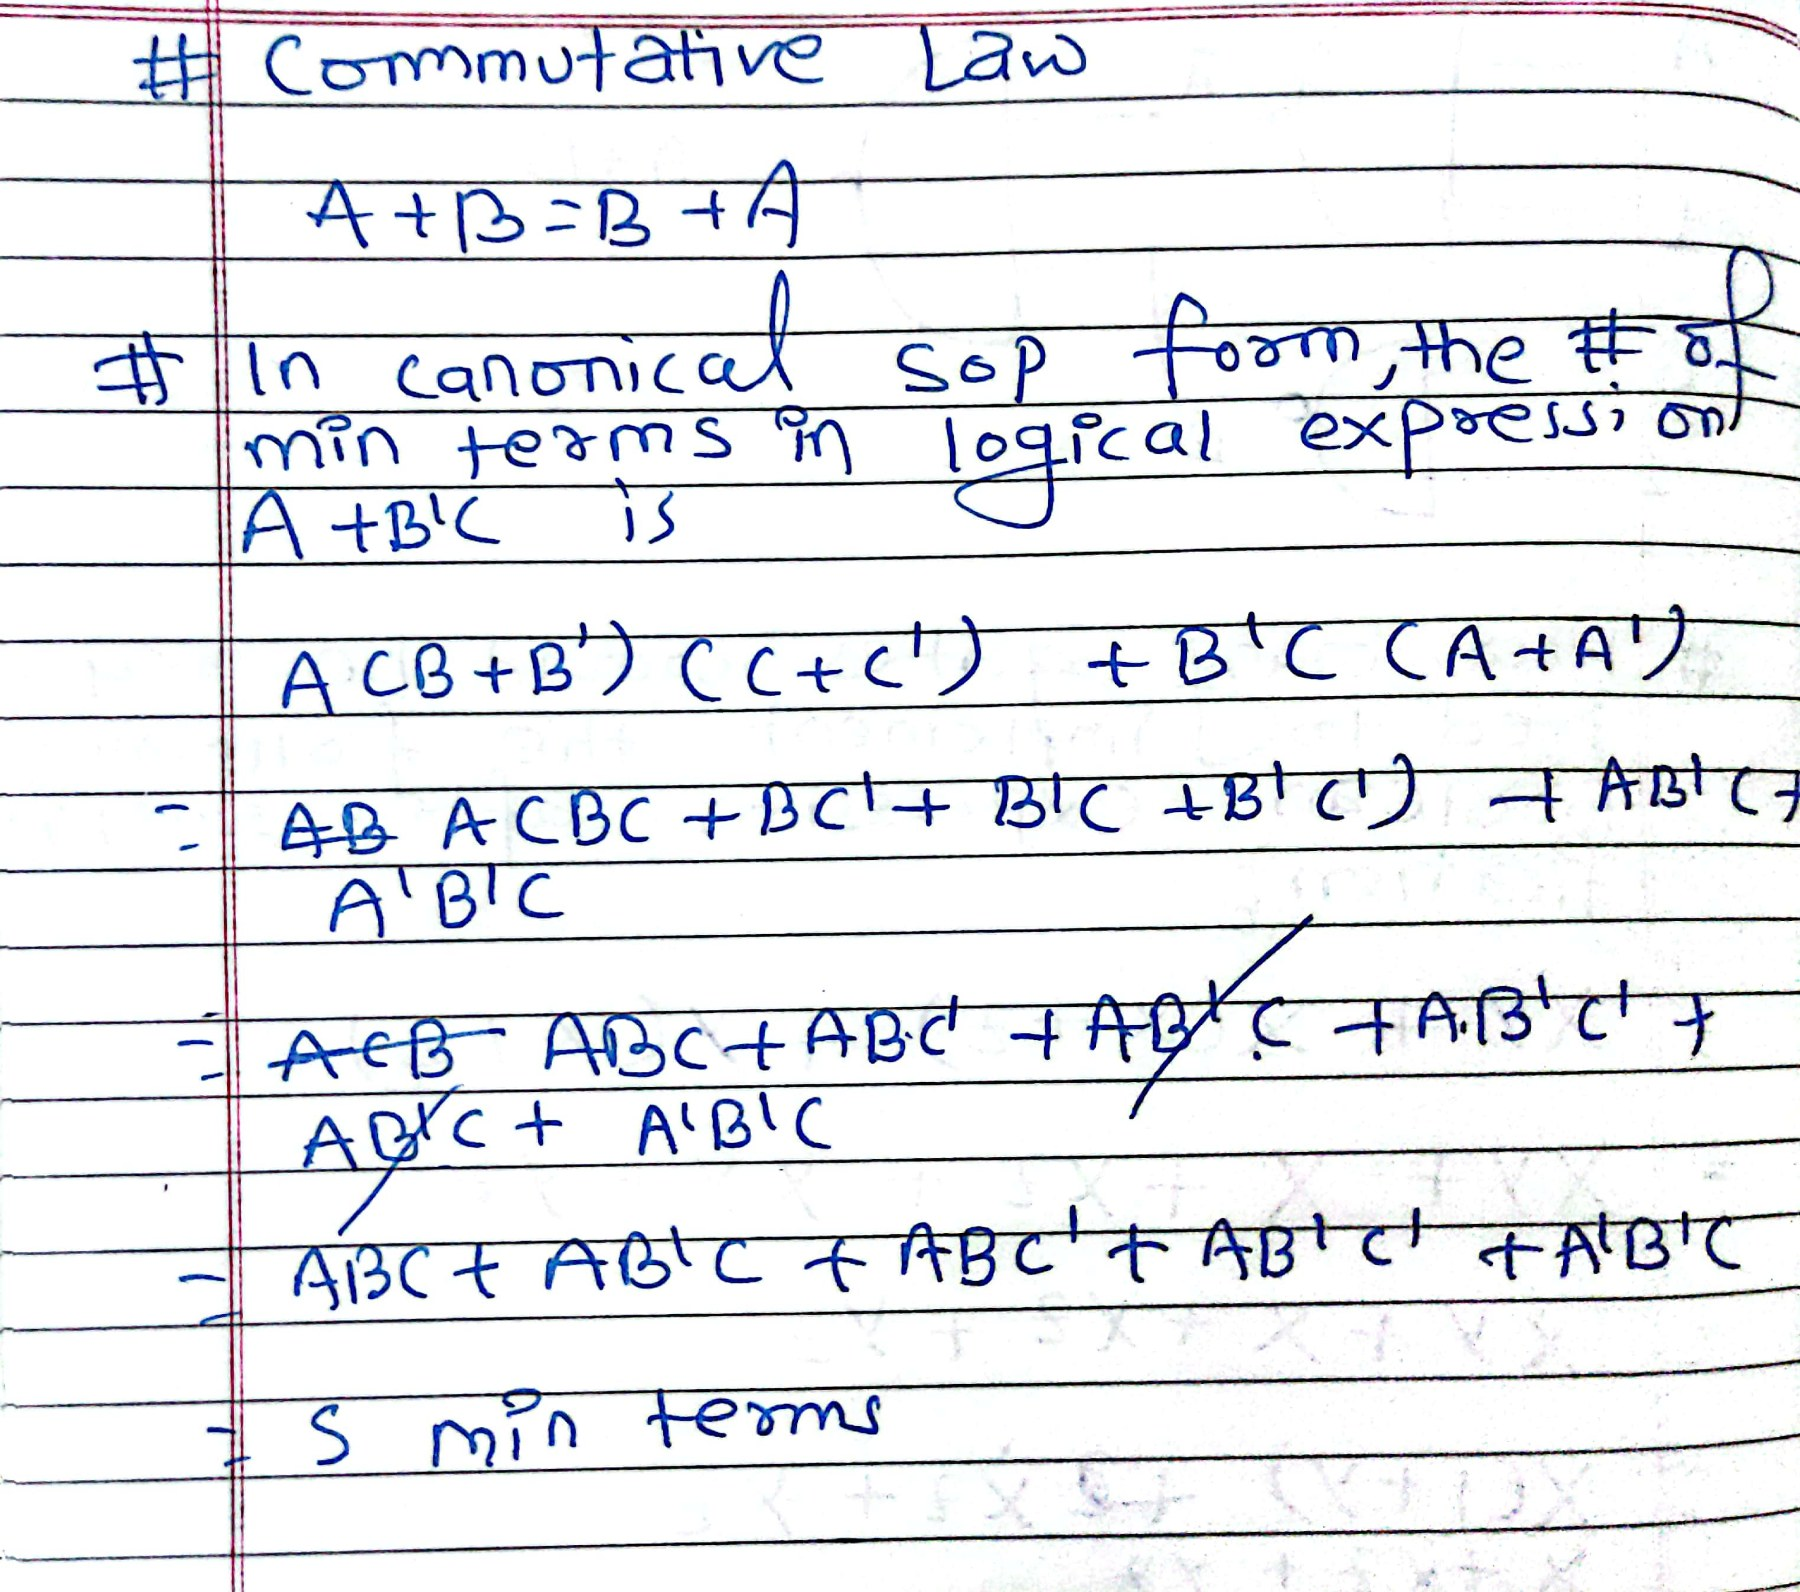 # Commutative Law
A + B = B + A
# In canonical SOP form, the # of
min terms in logical expression
A + B'C is
A (B + B') (C + C') + B'C (A + A')
= AB A (BC + BC' + B'C + B'C') + AB'C +
A'B'C
= ACB ABC + ABC' + AB'C + AB'C' +
AB'C + A'B'C
= ABC + AB'C + ABC' + AB'C' + A'B'C
= 5 min terms